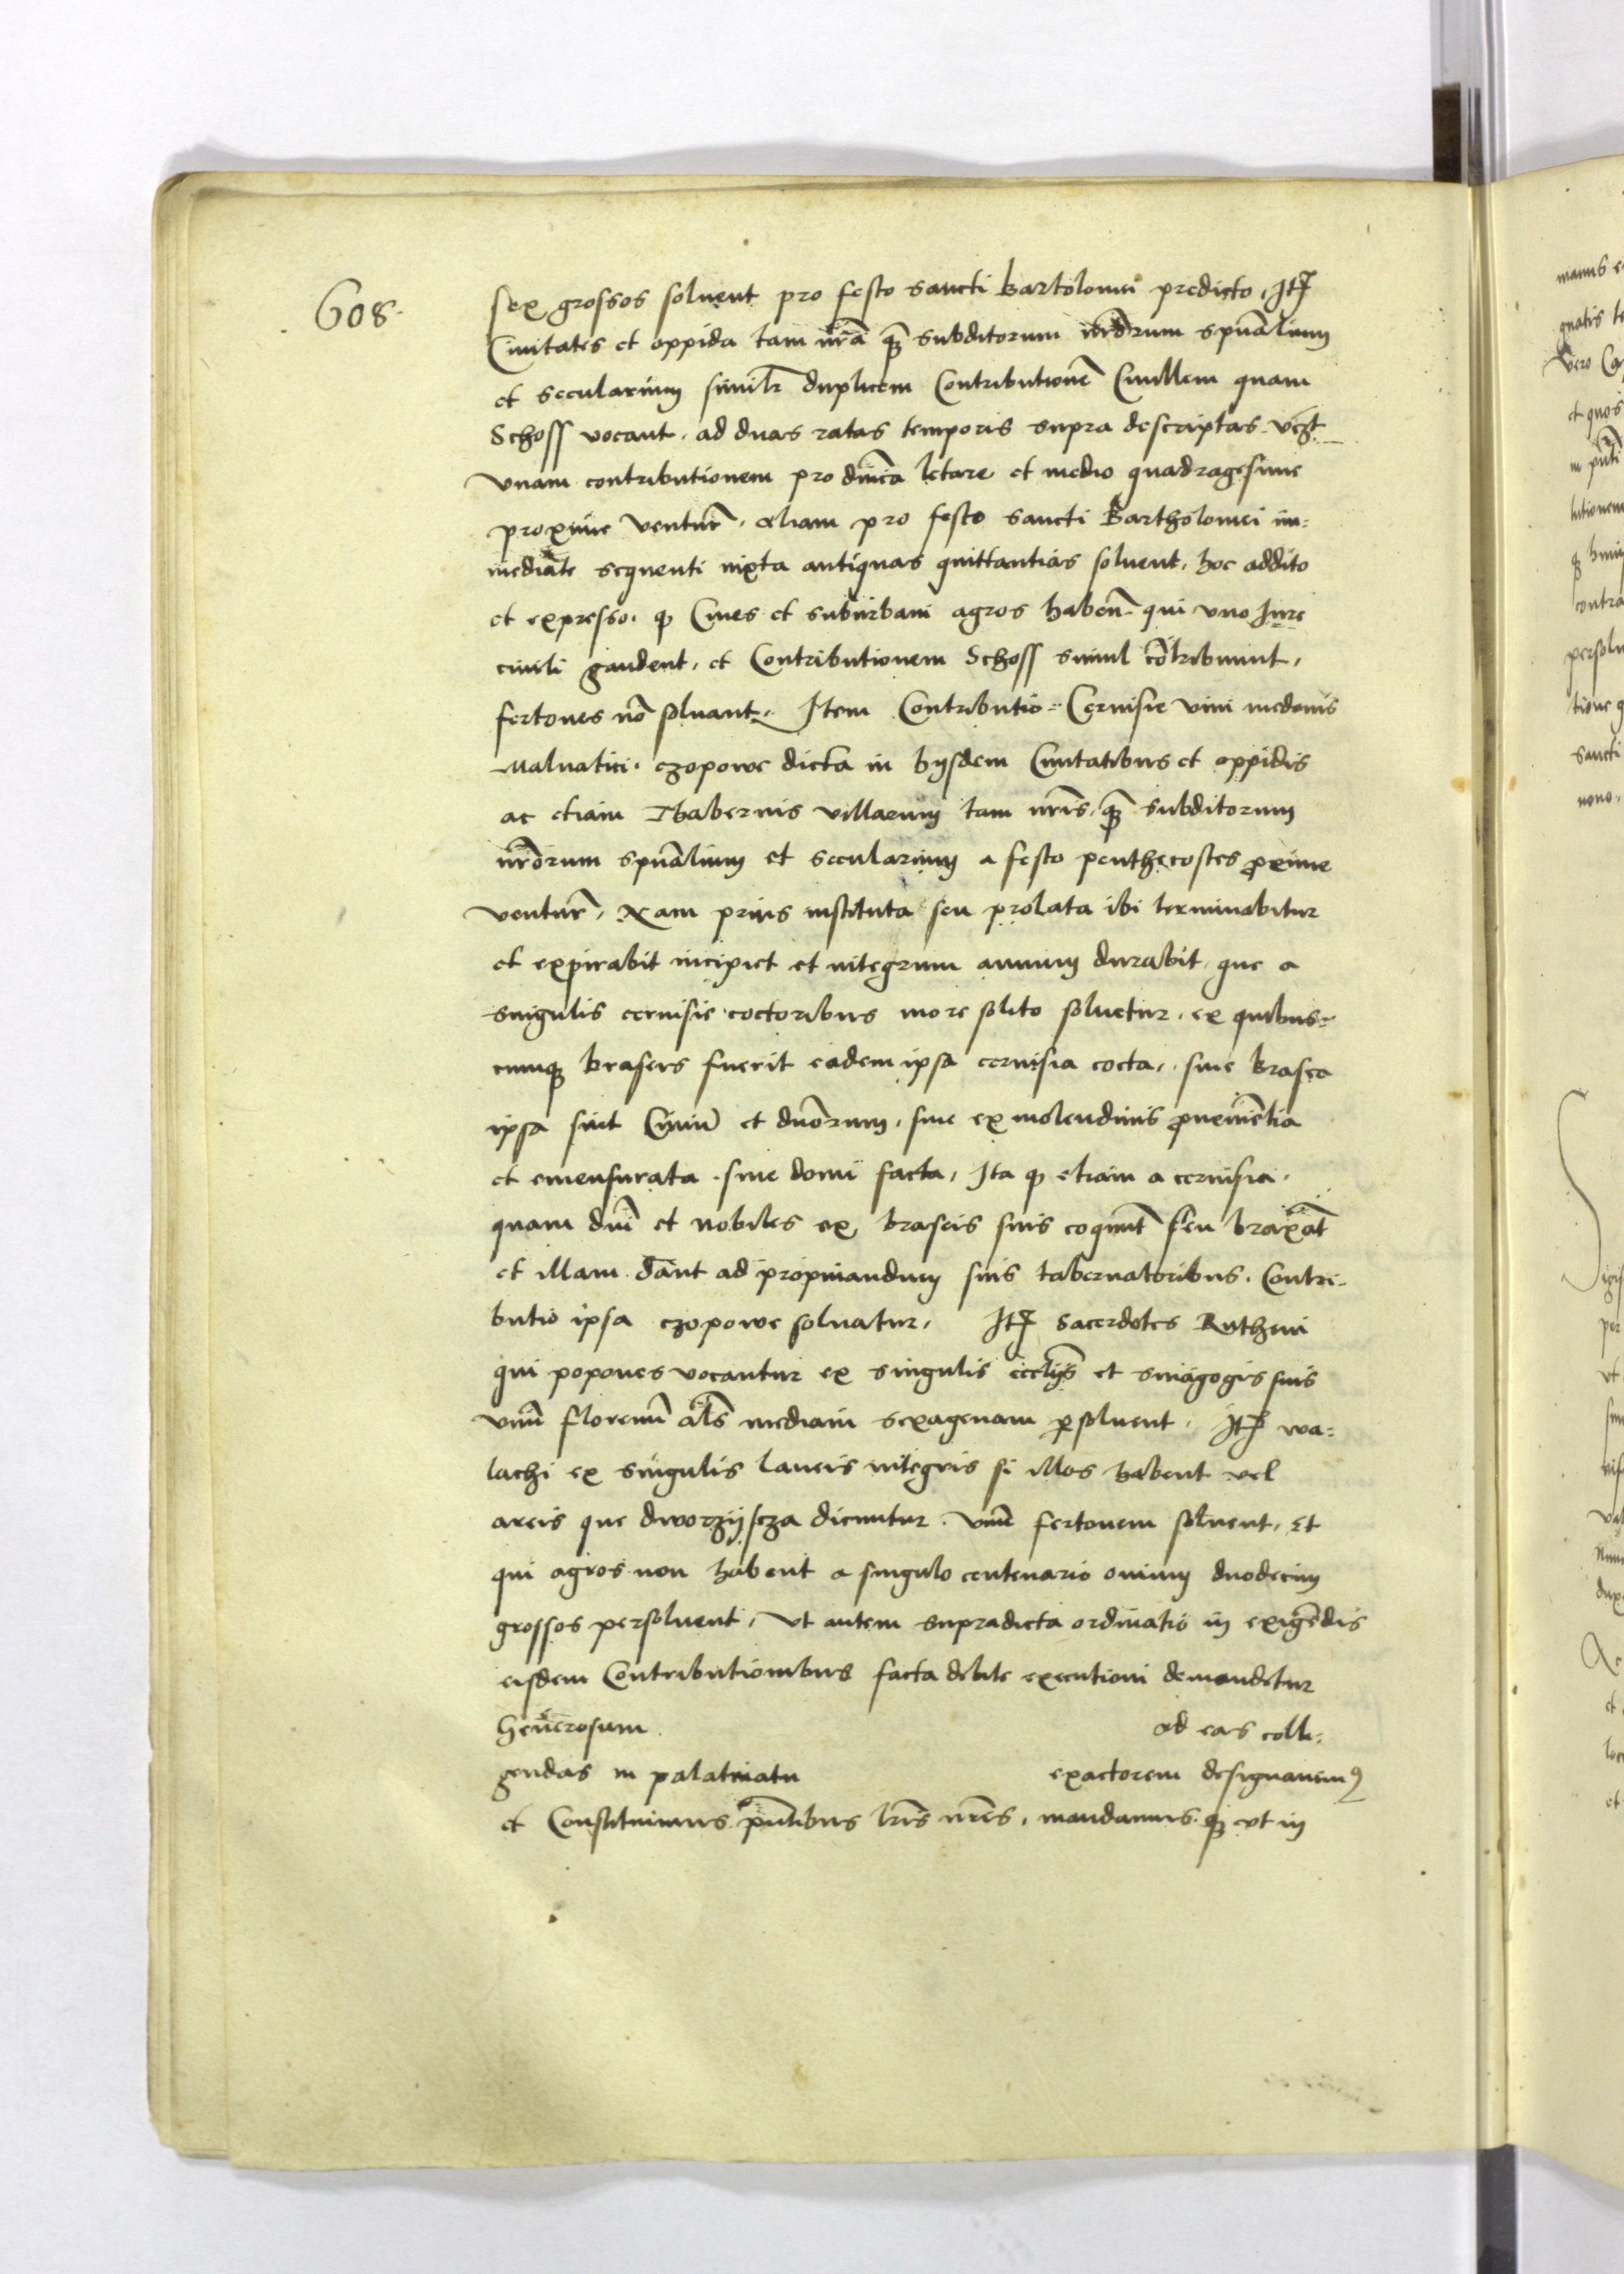 608.
sex grossos soluent pro festo sancti Bartolomei predicto, Itꝫ
Ciuitates et oppida tam nr̃a qꝫ subditorum nr̃orum spũalium
et secularium similr̃ duplicem Contributionẽ Ciuillem quam
Schoss vocant, ad duas ratas temporis supra descriptas vcꝫt
vnam contributionem pro dñica letare et medio quadragesime
proxime ventur̃, aliam pro festo sancti Bartholomei im:
mediate sequenti iuxta antiquas quittantias soluent, hoc addito
et expresso, ꝙ Ciues et suburbani agros habeñ qui vno Iure
ciuili gaudent, et Contributionem Schoss simul cõtribuunt,
fertones nõ soluant, Item Contributio Ceruisie vini medonis
Maluatici, czopowe dicta in hijsdem Ciuitatibus et oppidis
ac etiam Thabernis villarum tam nr̃is, qꝫ subditorum
nr̃orum spũalium et secularium a festo penthecostes ꝓxime
ventur̃, Nam prius instituta seu prolata ibi terminabitur
et expirabit incipiet et integrum annum durabit, que a
singulis ceruisie coctoribus more solito soluetur, ex quibus=
cumqꝫ braseis fuerit eadem ipsa ceruisia cocta, siue brasea
ipsa sint Ciuiũ et dñorum, siue ex molendinis ꝓueniẽtia
et emensurata siue domi facta, Ita ꝙ etiam a ceruisia,
quam dñi et nobiles ex braseis suis coquũt seu braxãt
et illam dãnt ad propinandum suis tabernatoribus, Contri-
butio ipsa czopowe soluatur, Itꝫ Sacerdotes Rutheni
qui popones vocantur ex singulis eccl̃ijs et sinagogis suis
vnũ florenũ al̃s mediam sexagenam ꝑsoluent, Itꝫ wa:
lachi ex singulis laneis integris si illos habent vel
areis que dworzijscza dicuntur vnũ fertonem soluent, Et
qui agros non habent a singulo centenario ouium duodecim
grossos persoluent, Vt autem supradicta ordinatio in exigẽdis
eisdem Contributionibus facta debite executioni demandetur
Generosum ad eas colli:
gendas in palatinatu exactorem designauimꝯ
et Constituimus p̃ntibus lr̃is nr̃is, mandamus qꝫ vt in